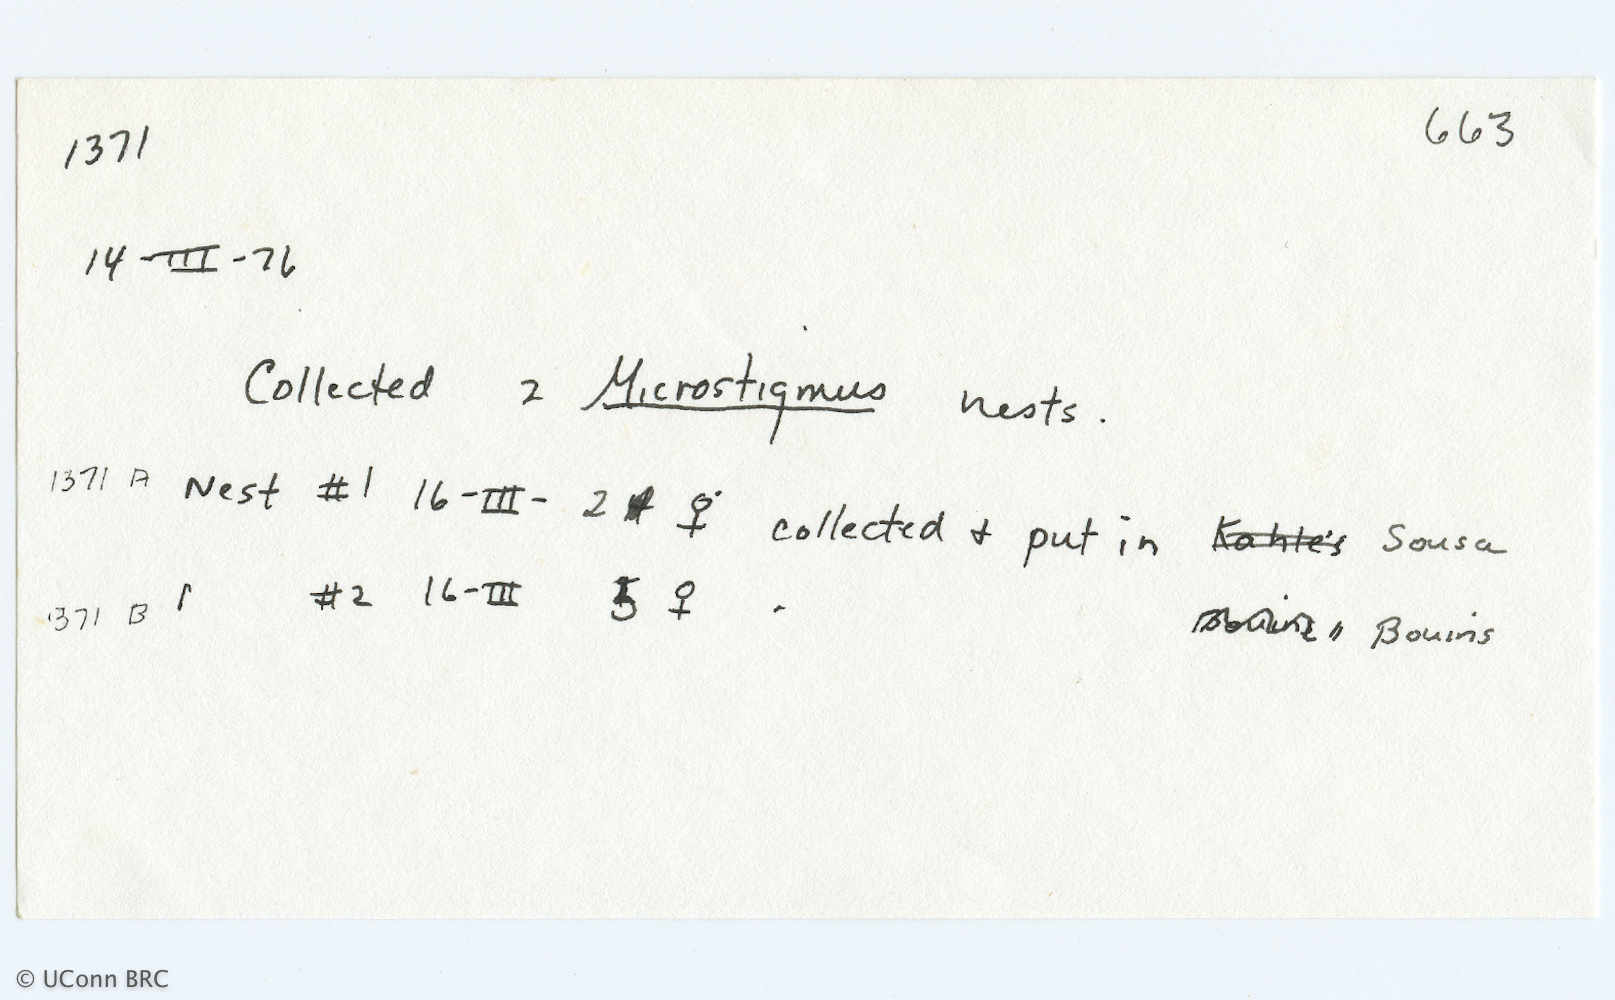 1371 663
14-III-76
Collected 2 Microstigmus nests.
1371 A Nest #1 16-III- 2 ♀ collected & put in Kahle's Sousa
1371 B #2 16-III 5 ♀ . " Bouins
© UConn BRC